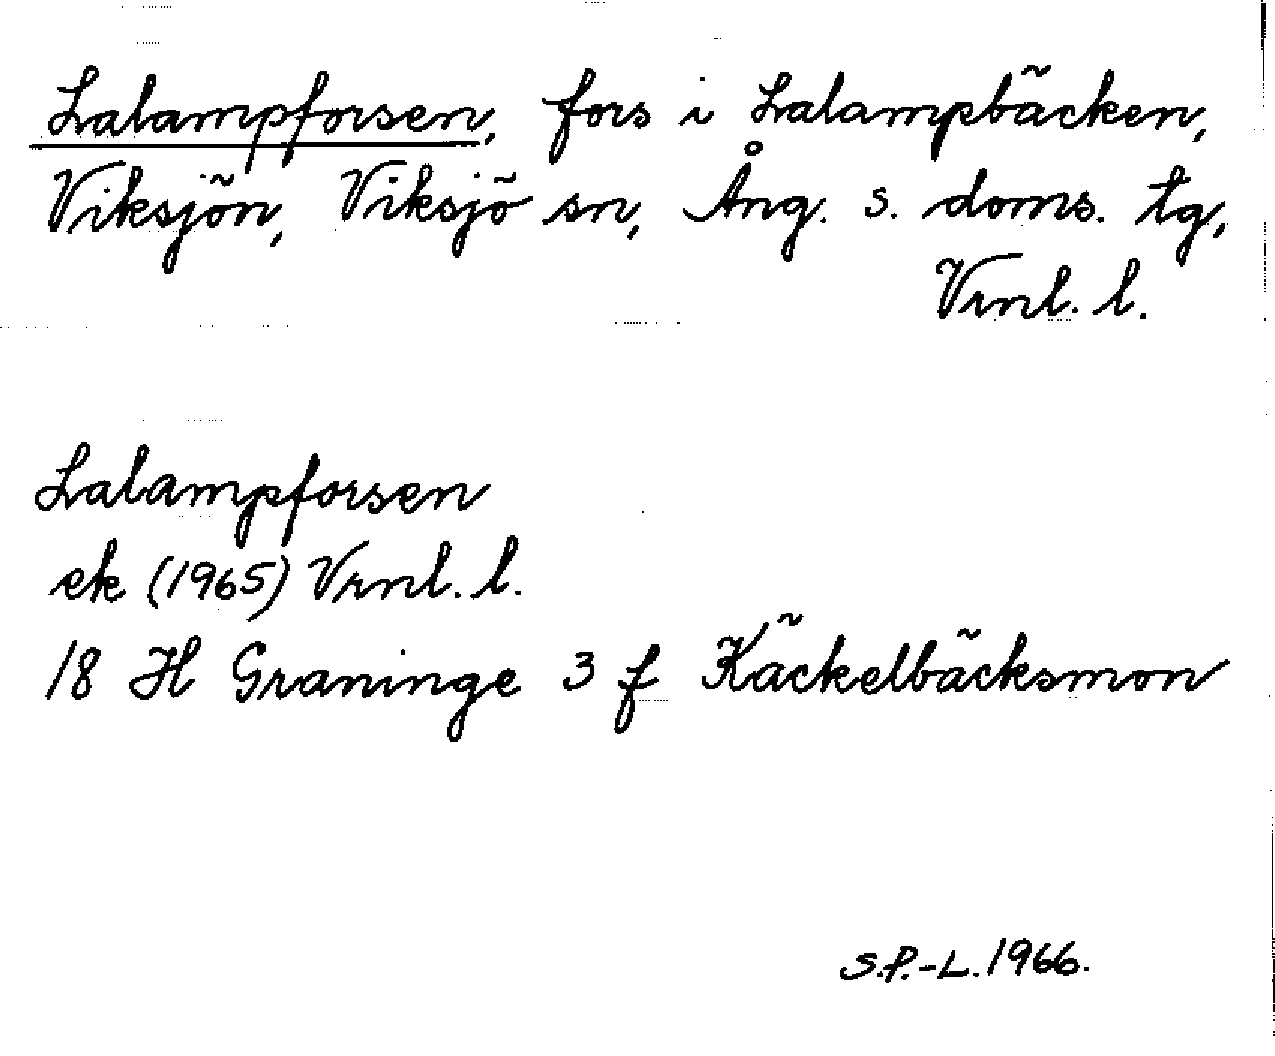 Lalampforsen, fors i Lalampbäcken,
Viksjön, Viksjö sn, Ång. s. doms. tg,
Vrnl. l.
Lalampforsen
ek (1965) Vrnl. l.
18 H Graninge 3 f Käckelbäcksmon
S.P.-L. 1966.